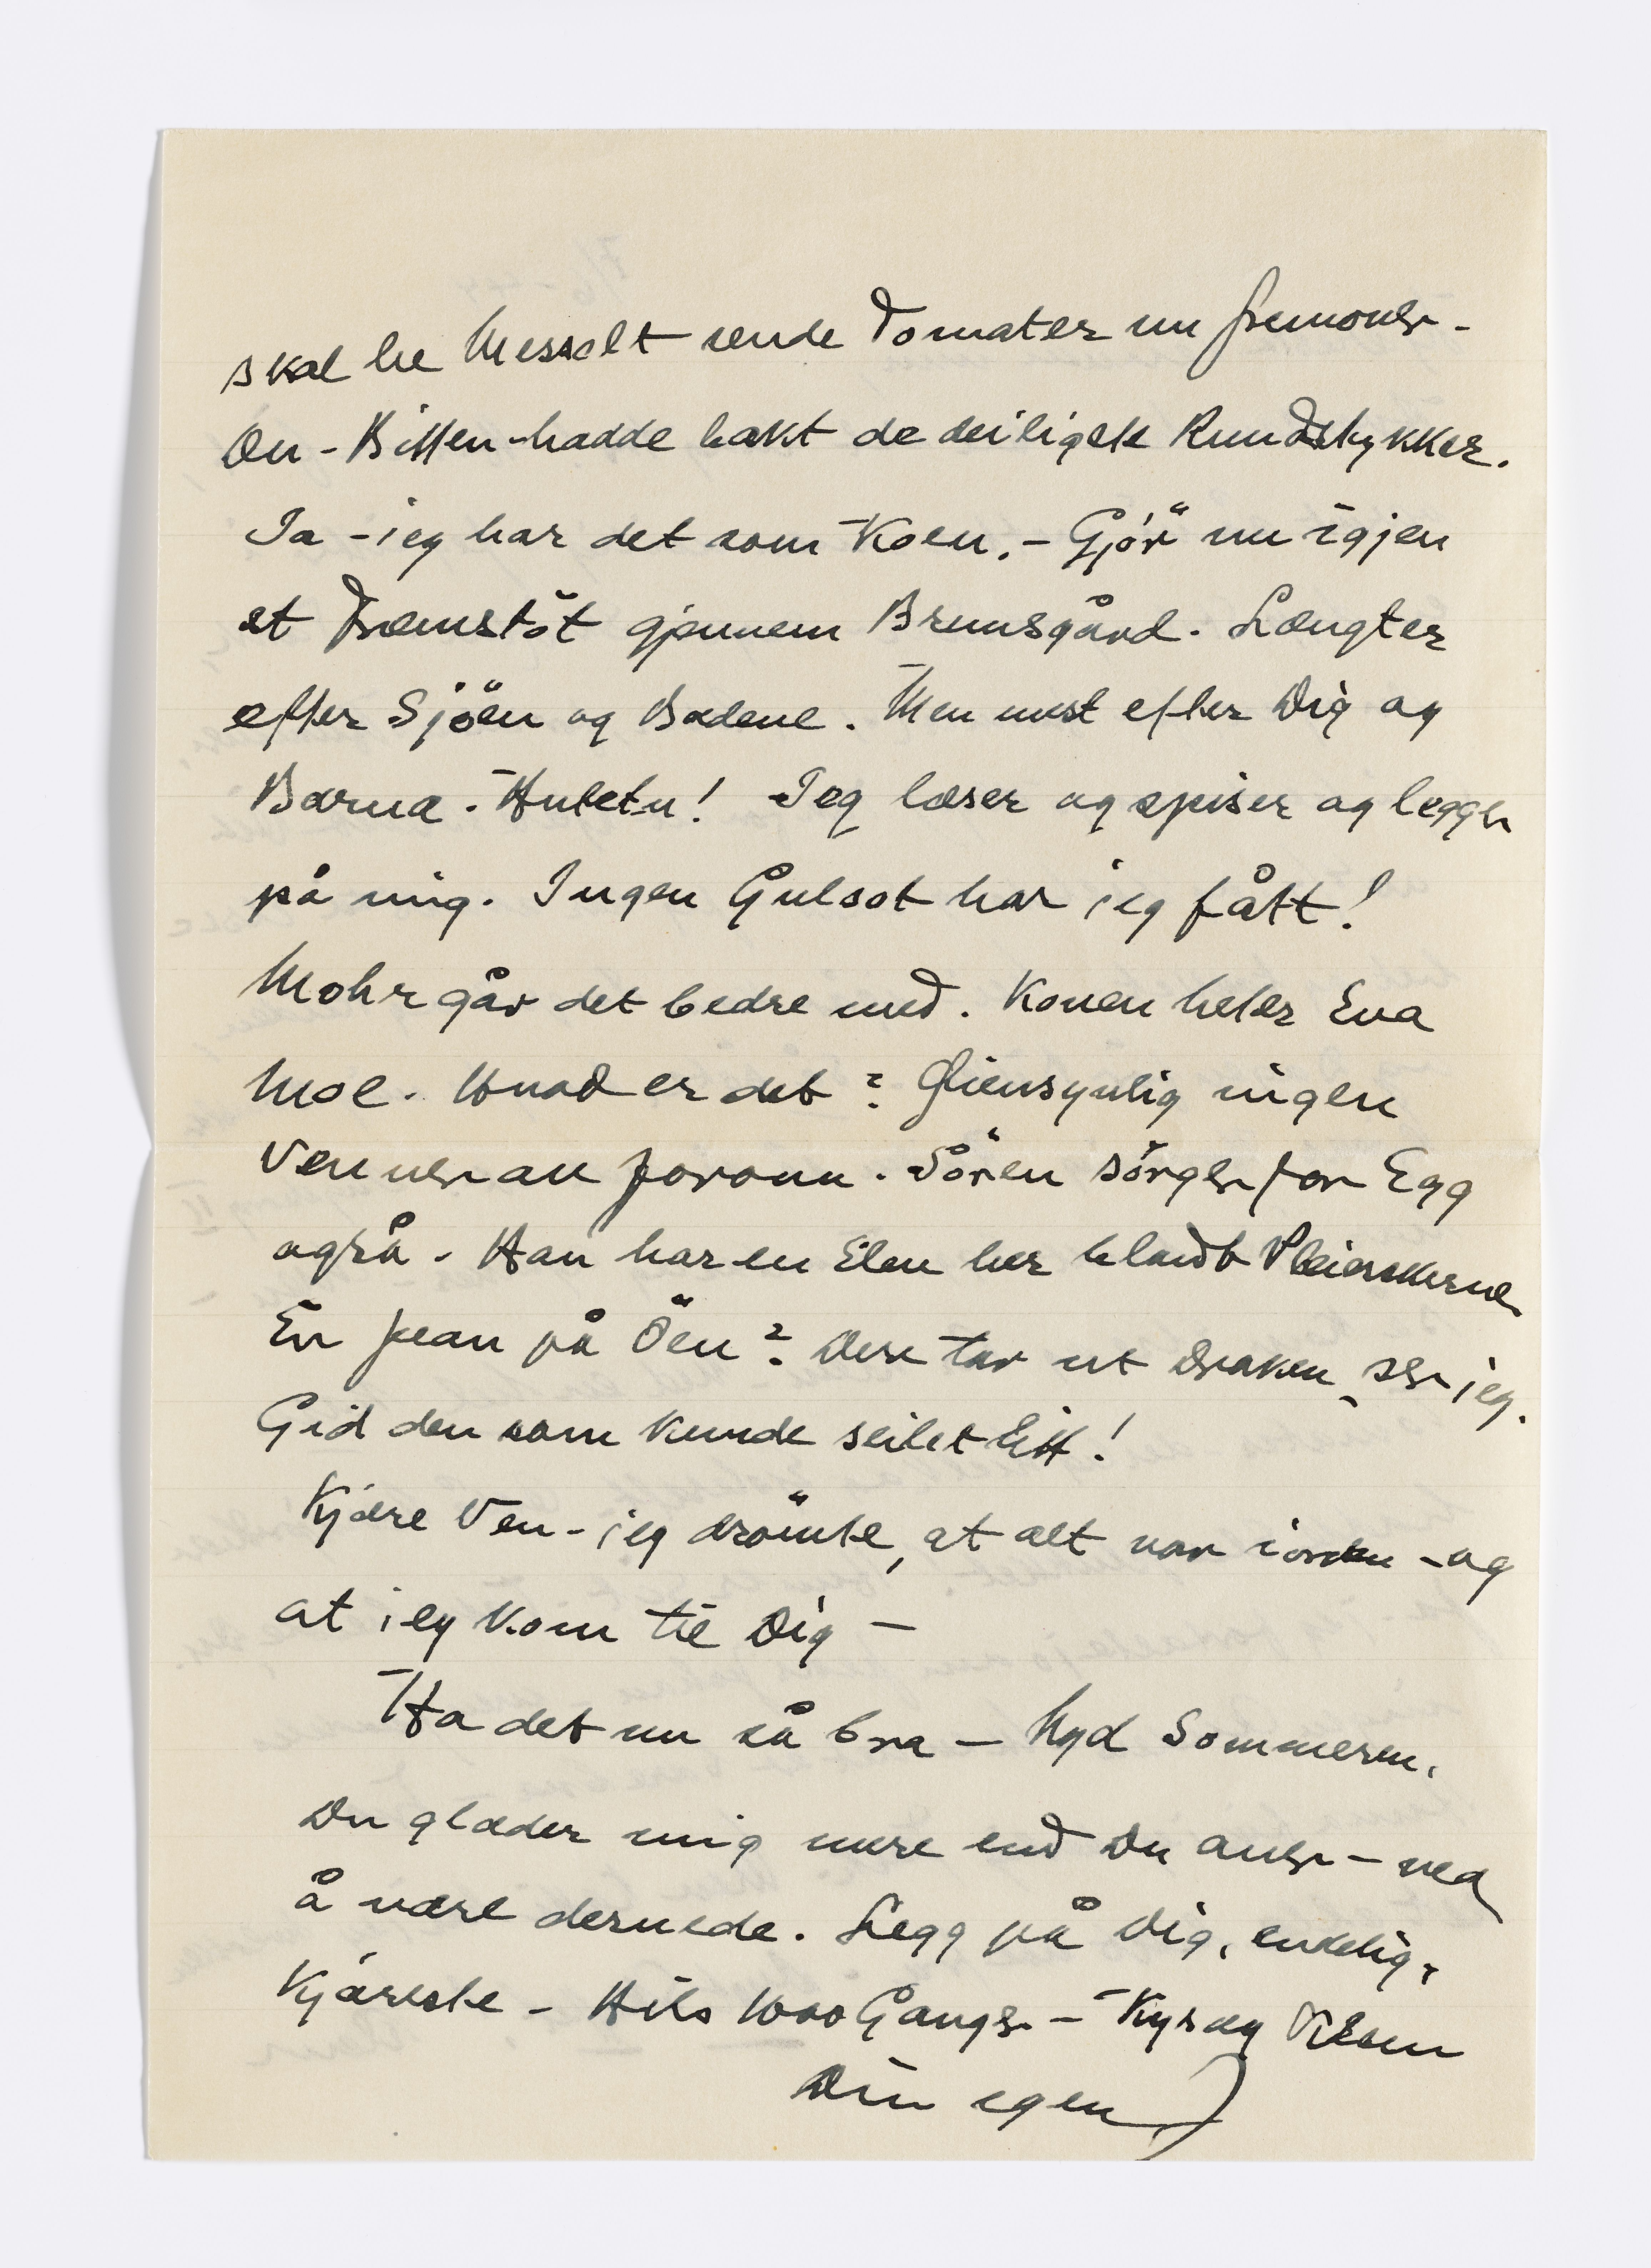 skal be Messelt sende Tomater nu fremover -
Du - Bitten - hadde bakt de deiligste Rundstykker.
Ja - jeg har det som Koen. - Gjör nu igjen
et Fremstöt gjennem Brunsgård. Længter
efter Sjöen og Badene. Men mest efter Dig og
Barna. Huletu! Jeg læser og spiser og legger
på mig. Ingen Gulsot har jeg fått!
Mohr går det bedre med. Konen heter Eva
Moe. Hvad er det? Øiensynlig ingen
Venner an forann. Sören sörger for Egg
også. Han har en Elev her blandt Pleierskerne
En fean på Öen? Dere tar ut Draken, ser jeg.
Gid den som kunde seilet litt!
Kjære Ven - jeg drömte, at alt var iorden - og
at jeg kom til Dig -
Ha det nu så bra - Nyd Sommeren.
Du glæder mig mere end Du aner - ved
å være dernede. Legg på Dig, endelig,
Kjæreste - Hils 1000 Ganger - Kys og Klem
Din egen